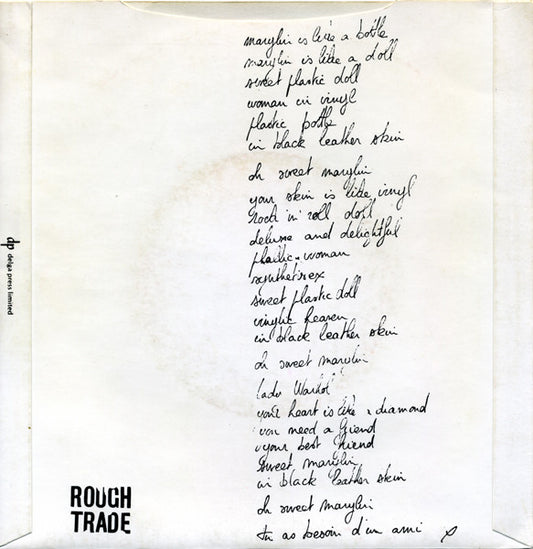 marylin is like a bottle
marylin is like a doll
sweet plastic doll
woman in vinyl
plastic bottle
in black leather skin
oh sweet marylin
your skin is like vinyl
rock 'in' roll doll
deluxe and delightful
plastic woman
synthetisex
sweet plastic doll
vinylic heaven
in black leather skin
oh sweet marylin
lady Warhol
your heart is like a diamond
you need a friend
your best friend
sweet marylin
in black leather skin
oh sweet marylin
tu as besoin d'un ami
dp delga press limited
ROUGH
TRADE